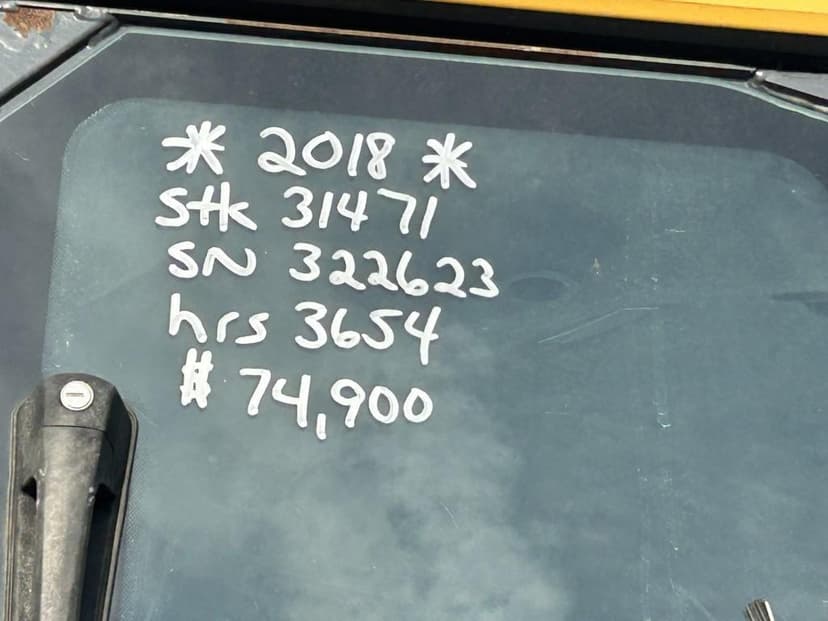 * 2018 *
Stk 31471
SN 322623
hrs 3654
$ 74,900